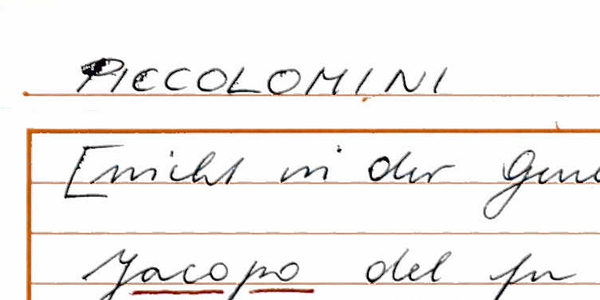 PICCOLOMINI
[nicht in der
Jacopo del fu